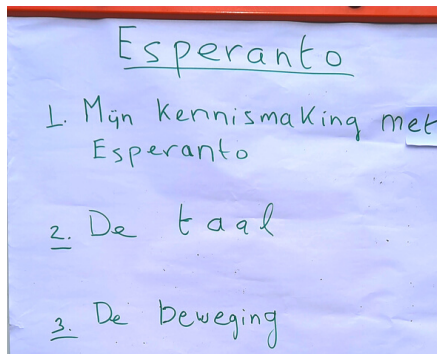 Esperanto
1. Mijn kennismaking met
Esperanto
2. De taal
3. De beweging